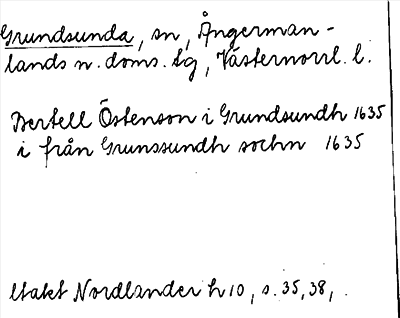 Grundsunda, sn, Ångerman-
lands n. doms. tg, Västernorrl. l.
Bertell Östenson i Grundsundh 1635
i från Grunssundh sochn 1635
Utakt Nordlander h 10, s. 35, 38,